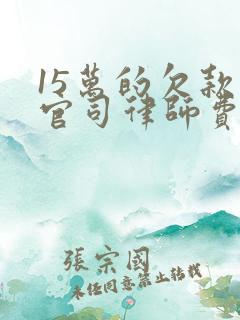 15萬的欠款
官司律師費
張宗國
未經同意禁止轉載